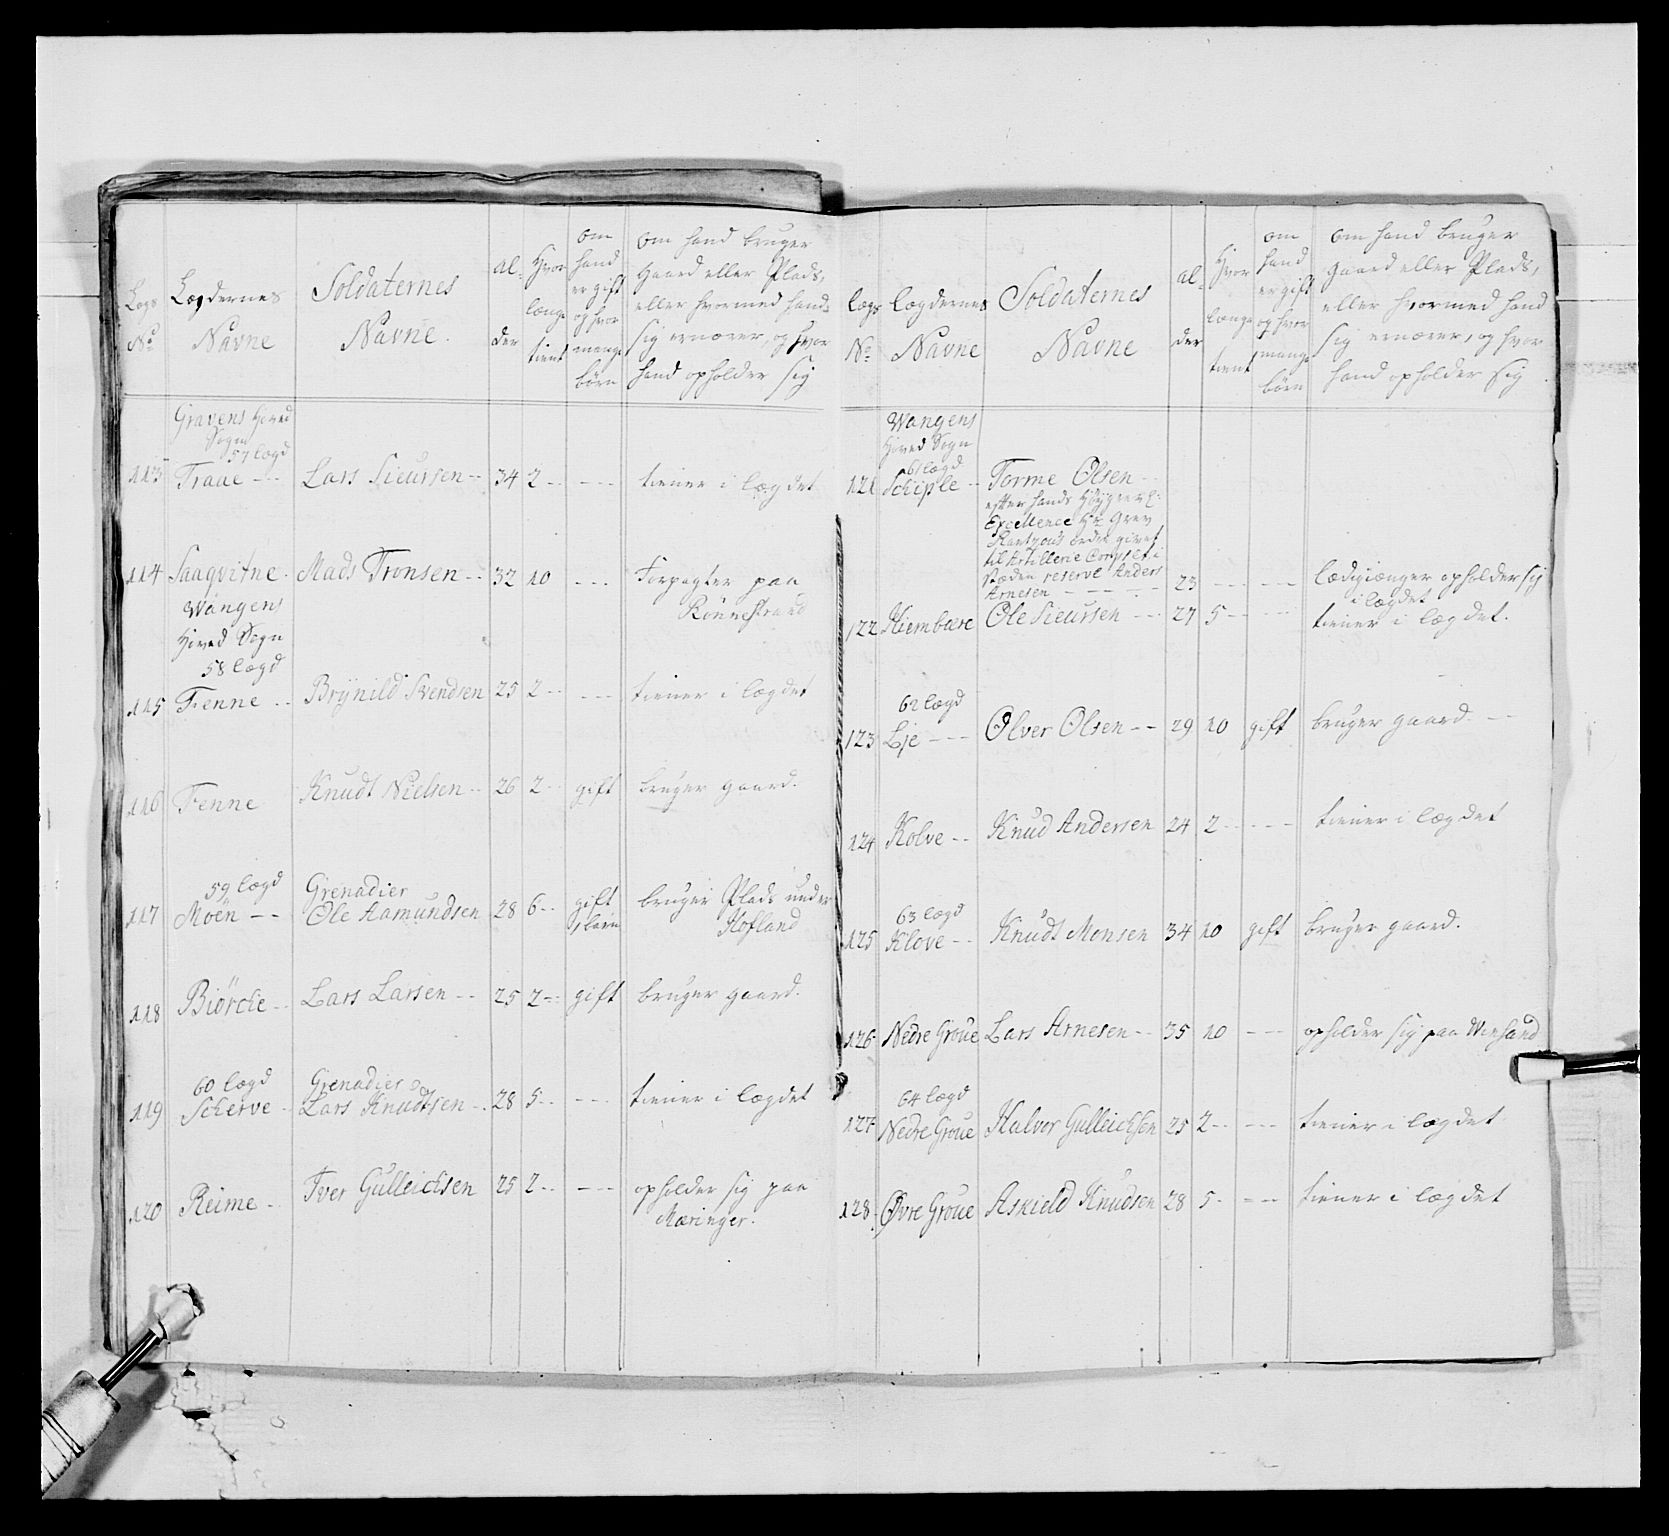 Legs No. Lægdernes Navne Soldaternes Navne. al- der Hvor længe tient om hand er gift og hvor mange børn om hand bruger gaard eller Plads, eller hvormed hand sig ernærer, og hvor hand opholder sig
Gravens Hoved
Sogn
57 lægd
113 Traae -- Lars Sieursen -- 34 2 -- --- tiener i lægdet
114 Saaqvitne. Mads Tronsen -- 32 10 --- Forpagter paa
Rønnestrand
Wangens
Hoved Sogn
58 lægd
115 Fenne -- Brÿnild Svendsen 25 2 -- --- tiener i lægdet
116 Fenne Knudt Nielsen -- 26 2 -- gift bruger gaard.
59 lægd Grenadier
117 Moën -- Ole Aamundsen 28 6 -- gift bruger Plads under
børn Hofland
118 Biörche -- Lars Larsen -- 25 2 -- gift bruger gaard.
60 lægd Grenadier
119 Scherve -- Lars Knudtsen -- 28 5 -- --- tiener i lægdet
120 Reime -- Iver Gulleichsen 25 2 -- --- opholder sig paa
Mæringer.
lægs No. lægdernes Navne Soldaternes Navne al- der Hvor længe tient om hand er gift og hvor mange børn om hand bruger gaard eller Plads, eller hvormed hand sig ernærer, og hvor hand opholder sig
Wangens
Hoved Sogn
61 lægd
121 Schiple -- Torme Olsen
efter hands
Excellence Hr. Grev
ordre givet
til Artillerie Corpset i
stæden reserve Anders
Arnesen ---- 23 --- --- lædigiænger opholder sig
i lægdet
122 Hiembære Ole Sieursen --- 27 5 -- --- tiener i lægdet.
62 lægd
123 Lje --- Olver Olsen -- 29 10 gift bruger gaard. --
124 Kolve -- Knud Andersen 24 2 -- --- tiener i lægdet
63 lægd
125 Klove -- Knudt Monsen 34 10 gift bruger gaard.
126 Nedre Groue Lars Arnesen -- 35 10 --- opholder sig paa
64 lægd
127 Nedre Groue Halvor Gulleichsen 25 2 -- --- tiener i lægdet
128. Øvre Groue Askield Knudsen 28 5 -- --- tiener i lægdet